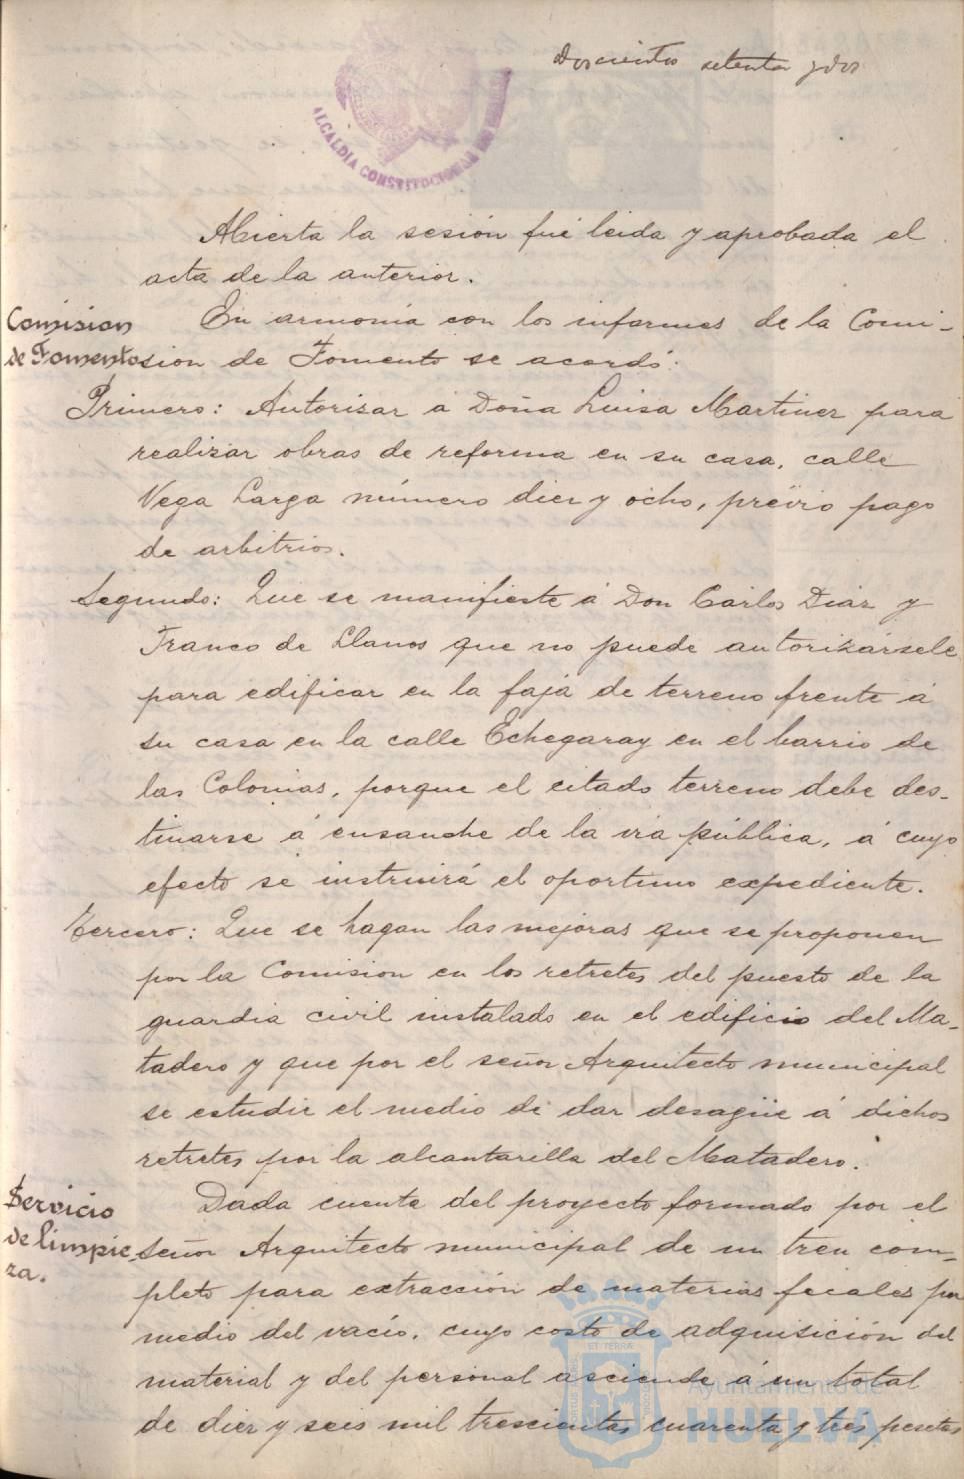 Doscientos setenta y dos
ALCALDIA CONSTITUCIONAL DE HUELVA
Abierta la sesión fué leida y aprobada el
acta de la anterior.
Comision
de Fomento
En armonía con los informes de la Comi-
sion de Fomento se acordó:
Primero: Autorizar á Doña Luisa Martinez para
realizar obras de reforma en su casa, calle
Vega Larga número diez y ocho, prévio pago
de arbitrios.
Segundo: Que se manifieste á Don Carlos Diaz y
Franco de Llanos que no puede autorizársele
para edificar en la faja de terreno frente á
su casa en la calle Echegaray en el barrio de
las Colonias, porque el citado terreno debe des-
tinarse á ensanche de la via pública, á cuyo
efecto se instruirá el oportuno expediente.
Tercero: Que se hagan las mejoras que se proponen
por la Comision en los retretes del puesto de la
guardia civil instalado en el edificio del Ma-
tadero y que por el señor Arquitecto municipal
se estudie el medio de dar desagüe á dichos
retretes por la alcantarilla del Matadero.
Servicio
de limpie
za.
Dada cuenta del proyecto formado por el
señor Arquitecto municipal de un tren com-
pleto para extracción de materias fecales por
medio del vacío, cuyo costo de adquisición del
material y del personal asciende á un total
de diez y seis mil trescientas cuarenta y tres pesetas
Ayuntamiento de
HUELVA